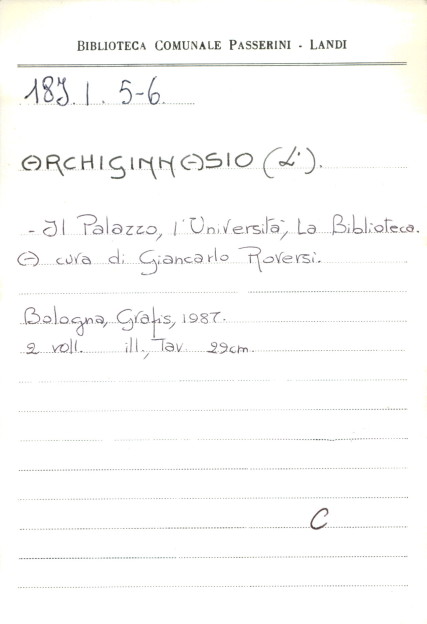 BIBLIOTECA COMUNALE PASSERINI - LANDI
18J. I. 5-6.
ARCHIGINNASIO (L').
- Il Palazzo, l'Università, La Biblioteca.
A cura di Giancarlo Roversi.
Bologna, Grafis, 1987.
2 voll. ill., Tav 29cm.
C